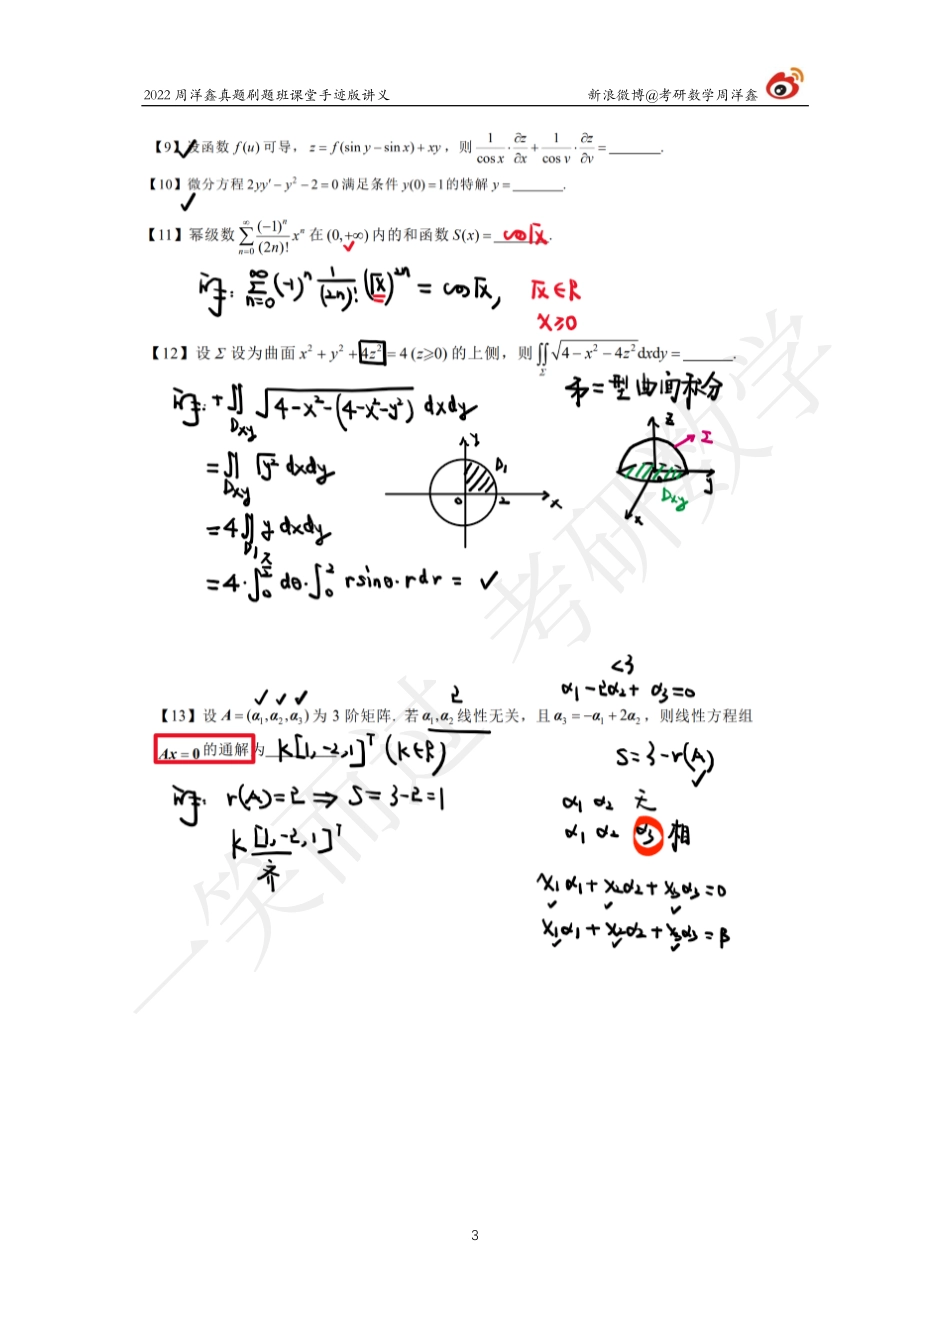 2022 周洋鑫真题刷题班课堂手迹版讲义 新浪微博@考研数学周洋鑫
【9】设函数 f(u) 可导，z = f(sin y − sin x) + xy，则 1/cos x · ∂z/∂x + 1/cos y · ∂z/∂y = ______.
【10】微分方程 2yy′ − y² − 2 = 0 满足条件 y(0) = 1 的特解 y = ______.
【11】幂级数 ∑_{n=0}^{∞} (−1)ⁿ/(2n)! xⁿ 在 (0,+∞) 内的和函数 S(x) = cos√x .
解: ∑_{n=0}^{∞} (−1)ⁿ 1/(2n)! (√x)²ⁿ = cos√x, √x ∈ R
x ≥ 0
【12】设 Σ 设为曲面 x² + y² + 4z² = 4 (z⩾0) 的上侧，则 ∬_Σ √(4 − x² − 4z²) dxdy = ______.
第二型曲面积分
解: + ∬_{Dxy} √(4−x²−(4−x²−y²)) dxdy
= ∬_{Dxy} √y² dxdy
= 4∬_{D₁} y dxdy
= 4·∫₀^{π/2} dθ·∫₀² r sinθ·r dr = ✓
y D₁ 0 2 x
z Σ y Dxy x
<3
α₁−2α₂+α₃=0
2
【13】设 A = (α₁,α₂,α₃) 为 3 阶矩阵. 若 α₁,α₂ 线性无关，且 α₃ = −α₁ + 2α₂，则线性方程组
Ax = 0 的通解为 k[1,−2,1]ᵀ (k∈R)
S = 3−r(A)
解: r(A)=2 ⇒ S = 3−2 = 1
k[1,−2,1]ᵀ
齐
α₁ α₂ 无
α₁ α₂ α₃ 相
x₁α₁ + x₂α₂ + x₃α₃ = 0
x₁α₁ + x₂α₂ + x₃α₃ = β
一笑而过 考研数学
3